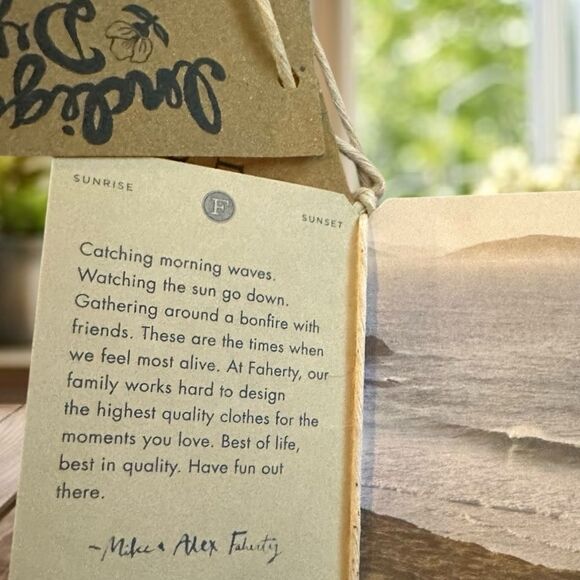 Indigo
SUNRISE
F
SUNSET
Catching morning waves.
Watching the sun go down.
Gathering around a bonfire with
friends. These are the times when
we feel most alive. At Faherty, our
family works hard to design
the highest quality clothes for the
moments you love. Best of life,
best in quality. Have fun out
there.
- Mike & Alex Faherty